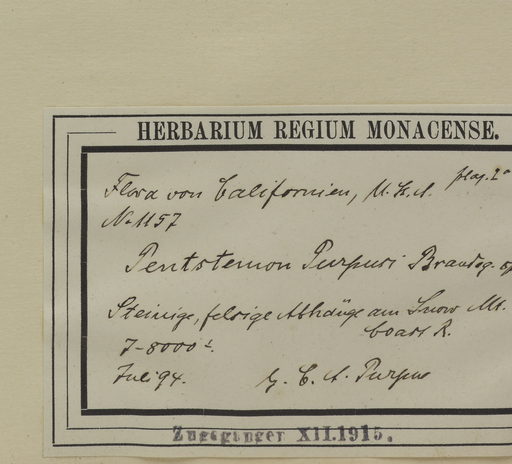 HERBARIUM REGIUM MONACENSE.
Flora von Californien, U.S.A.
No 1157
Pentstemon Purpusi Brandeg.
Steinige, felsige Abhänge am Snow Mt.
Coast R.
7-8000'.
Juli 94.
G. C. A. Purpus
Zugegangen XII.1915.